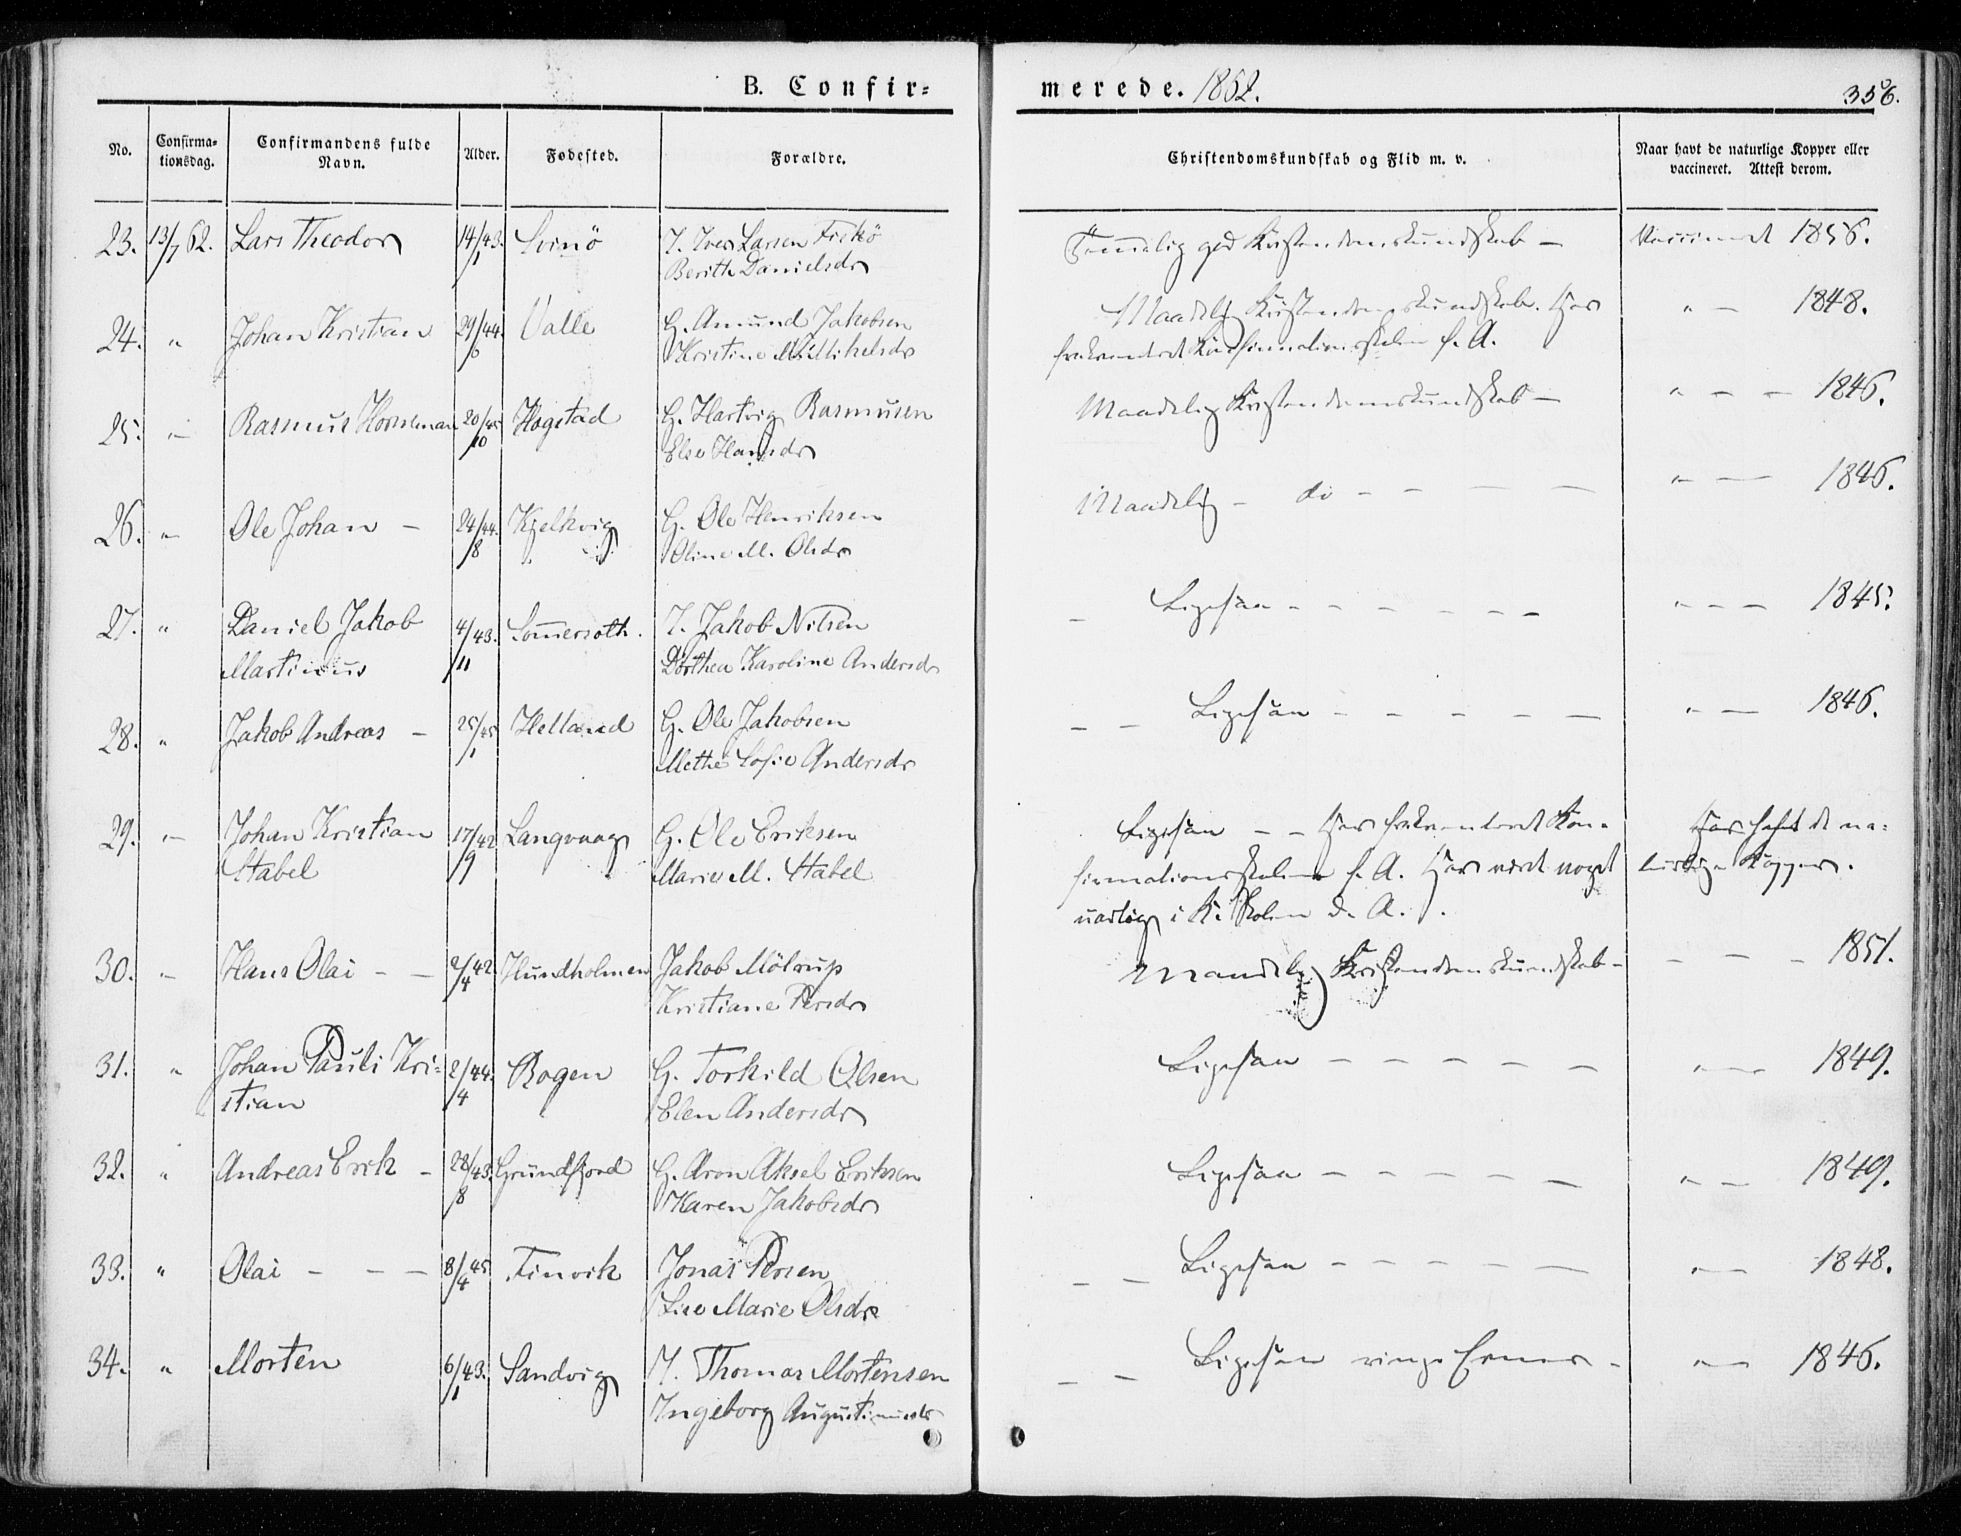 B. Confir=
merede. 1862.
356.
No.
Confirma=
tionsdag.
Confirmandens fulde
Navn.
Alder.
Fødested.
Forældre.
Christendomskundskab og Flid m. v.
Naar havt de naturlige Kopper eller
vaccineret. Attest derom.
23. 13/7 62. Lars Theodor 14/43. 1 Svinö I. Iver Larsen Fiskö
Berith Danielsdr
Temmelig god Kristendomskundskab — Vaccineret 1856.
24. " Johan Kristian 29/44. 6 Valle G. Amund Jakobsen
Kristine M. Mikelsdr
Maadelig Kristendomskundskab. Har " — 1848.
frekventeret Konfirmationsskolen f. A.
25. " — Rasmus Horneman 20/45 10 Hogstad G. Hartvig Rasmusen
Else Hansdr
Maadelig Kristendomskundskab — " — — 1846.
26. " Ole Johan — 24/44. 8 Kjelkvig G. Ole Henriksen
Oline M. Olsdr
Maadelig — do — — — — " — — 1846.
27. " Daniel Jakob 4/43. 11 Sommerseth. I. Jakob Nilsen
Martinus Dorthea Karoline Andersdr
— Ligesaa — — — — — — " — — 1845.
28. " Jakob Andreas — 25/45 1 Helland G. Ole Jakobsen
Methe Sofie Andersdr
— — Ligesaa — — — — — " — 1846.
29. " — Johan Kristian 17/42 9 Langvaag G. Ole Eriksen
Stabel Marie M. Stabel
Ligesaa — — Har frekventeret Kon= Har haft de na=
firmationsskolen f. A. Har været noget turlige Kopper.
uartig i K. Skolen d. A.
30. " Hans Olai — — 2/42. 4 Hundholmen Jakob Mölrup
Kristiane Persdr
Maadelig Kristendomskundskab — — — — 1851.
31. " Johan Pauli Kri= 2/44. 4 Bogen G. Torkild Olsen
stian Elen Andersdr
Ligesaa — — — — — " — 1849.
32. " Andreas Erik — 28/43. 8 Grundfjord G. Aron Aksel Eriksen
Karen Jakobsdr
Ligesaa — — — — — " — 1849.
33. " Olai — — — 8/45 4 Finvik Jonas Persen
Lise Marie Olsdr
— — Ligesaa — — — — — " — 1848.
34. " Morten 6/43. 1 Sandvig I. Thomas Mortensen
Ingeborg Augustinusdr
— — Ligesaa ringe Evner — " — 1846.